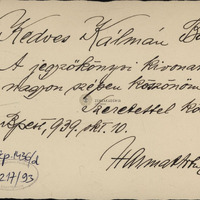 Kedves Kálmán
A jegyzőkönyvi kivonat
nagyon szépen köszönöm
Szeretettel
Bpest, 939. okt. 10.
217/93